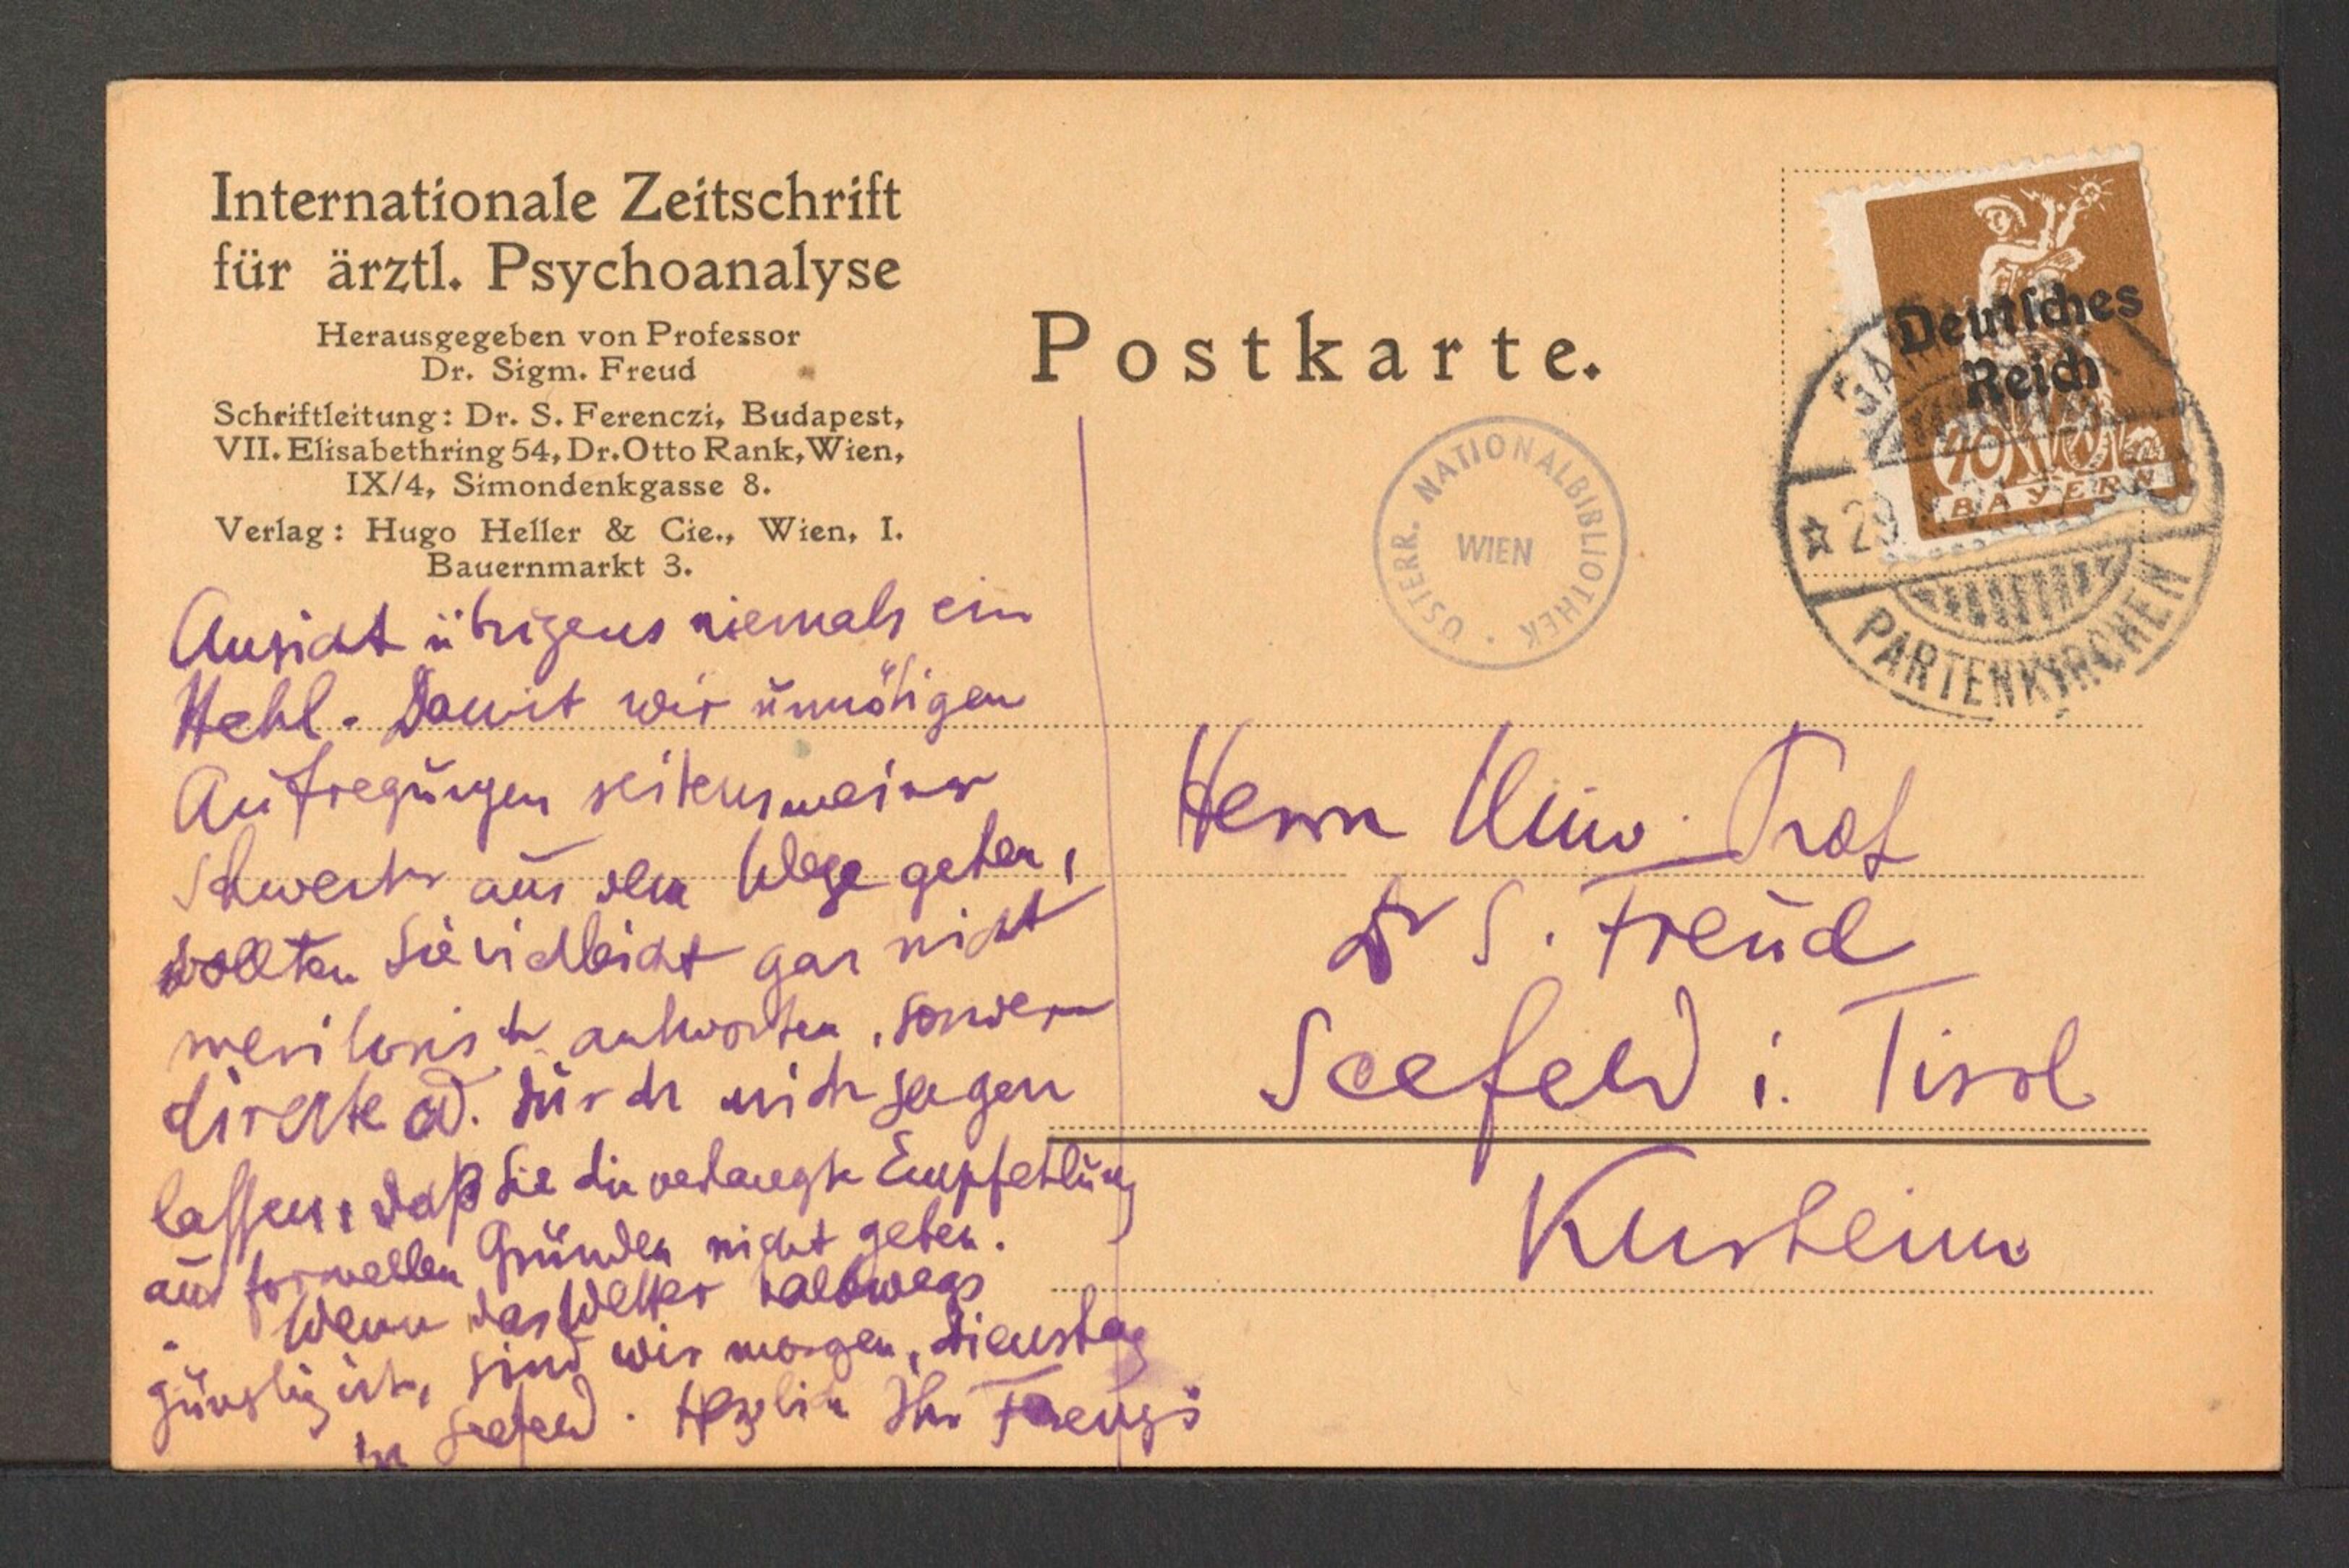 Internationale Zeitschrift
für ärztl. Psychoanalyse
Herausgegeben von Professor
Dr. Sigm. Freud
Schriftleitung: Dr. S. Ferenczi, Budapest,
VII. Elisabethring 54, Dr. Otto Rank, Wien,
IX/4, Simondenkgasse 8.
Verlag: Hugo Heller & Cie., Wien, I.
Bauernmarkt 3.
Postkarte.
Deutsches
Reich
40
BAYERN
PARTENKIRCHEN
ÖSTERR. NATIONALBIBLIOTHEK
WIEN
Ansicht übrigens niemals ein
Hehl. Damit wir unnötigen
Aufregungen seitens meiner
Schwester aus dem Wege gehen,
wollten Sie vielleicht gar nicht
meritorisch antworten, sondern
direkte od. durch mich sagen
lassen, daß Sie die verlangte Empfehlung
aus formellen Gründen nicht geben.
Wenn das Wetter halbwegs
günstig ist, sind wir morgen, Dienstag
in Seefeld. Herzlich Ihr Ferenczi
Herrn Univ. Prof
Dr S. Freud
Seefeld i. Tirol
Kurheim